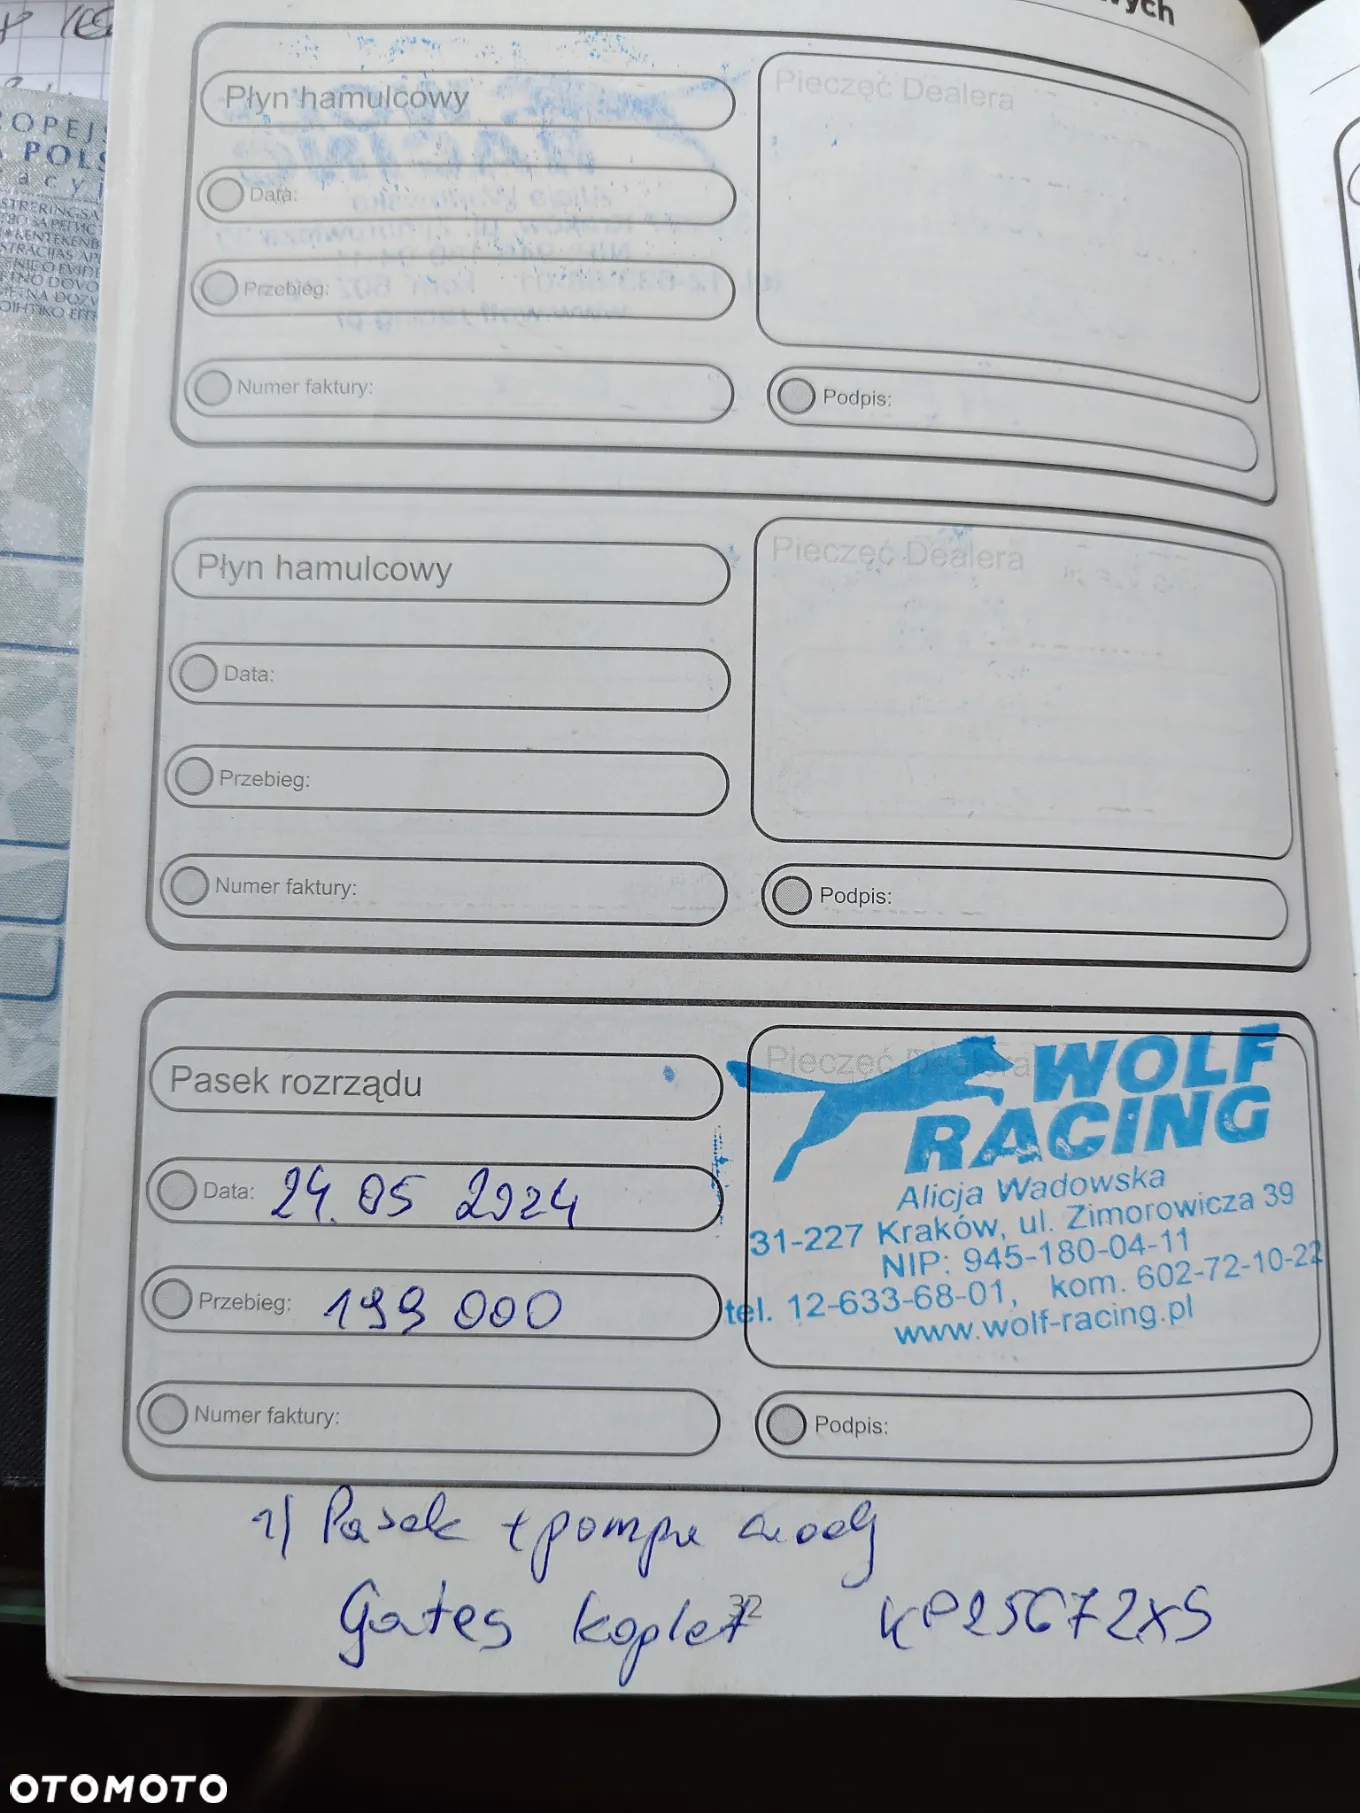 wych
Płyn hamulcowy
Pieczęć Dealera
Data:
Przebieg:
Numer faktury:
Podpis:
Płyn hamulcowy
Pieczęć Dealera
Data:
Przebieg:
Numer faktury:
Podpis:
Pasek rozrządu
Pieczęć Dealera
WOLF
RACING
Alicja Wadowska
31-227 Kraków, ul. Zimorowicza 39
NIP: 945-180-04-11
tel. 12-633-68-01, kom. 602-72-10-22
www.wolf-racing.pl
Data: 24.05 2024
Przebieg: 199 000
Numer faktury:
Podpis:
1) Pasek + pompa wody
Gates koplet KP25672XS
32
OTOMOTO